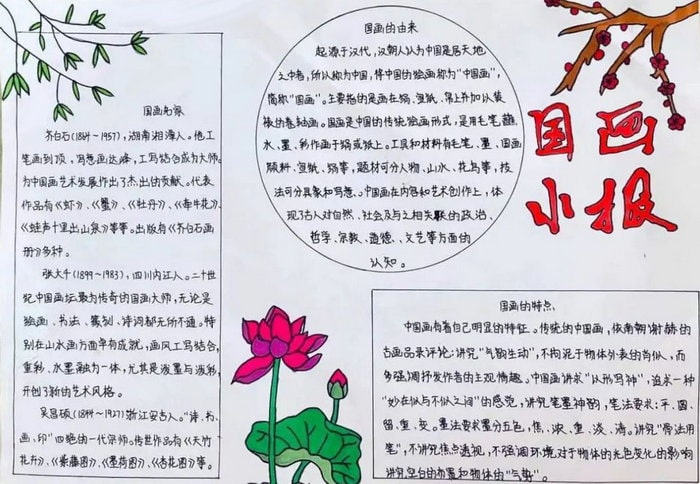 国画名家
齐白石(1864～1957),湖南湘潭人。他工
笔画到顶,写意画达峰,工写结合成为大师。
为中国画艺术发展作出了杰出的贡献。代表
作品有《虾》、《蟹》、《牡丹》、《牵牛花》、
《蛙声十里出山泉》等等。出版有《齐白石画
册》多种。
张大千(1899～1983),四川内江人。二十世
纪中国画坛最为传奇的国画大师,无论是
绘画、书法、篆刻、诗词都无所不通。特
别在山水画方面卓有成就,画风工写结合,
重彩、水墨融为一体,尤其是泼墨与泼彩,
开创了新的艺术风格。
吴昌硕(1844～1927)浙江安吉人。“诗、书、
画、印”四绝的一代宗师。传世作品有《天竹
花卉》、《紫藤图》、《墨荷图》、《杏花图》等。
国画的由来
起源于汉代,汉朝人认为中国是居天地
之中者,所以称为中国,将中国的绘画称为“中国画”,
简称“国画”。主要指的是画在绢、宣纸、帛上并加以装
裱的卷轴画。国画是中国的传统绘画形式,是用毛笔蘸
水、墨、彩作画于绢或纸上。工具和材料有毛笔、墨、国画
颜料、宣纸、绢等,题材可分人物、山水、花鸟等,技
法可分具象和写意。中国画在内容和艺术创作上,体
现了古人对自然、社会及与之相关联的政治、
哲学、宗教、道德、、文艺等方面的
认知。
国画
小报
国画的特点
中国画有着自己明显的特征。传统的中国画,依南朝谢赫的
古画品录评论:讲究“气韵生动”,不拘泥于物体外表的肖似,而
多强调抒发作者的主观情趣。中国画讲求“以形写神”,追求一种
“妙在似与不似之间”的感觉,讲究笔墨神韵,笔法要求:平、圆、
留、重、变。墨法要求墨分五色,焦、浓、重、淡、清。讲究“骨法用
笔”,不讲究焦点透视,不强调环境对于物体的光色变化的影响
讲究空白的布置和物体的“气势”。